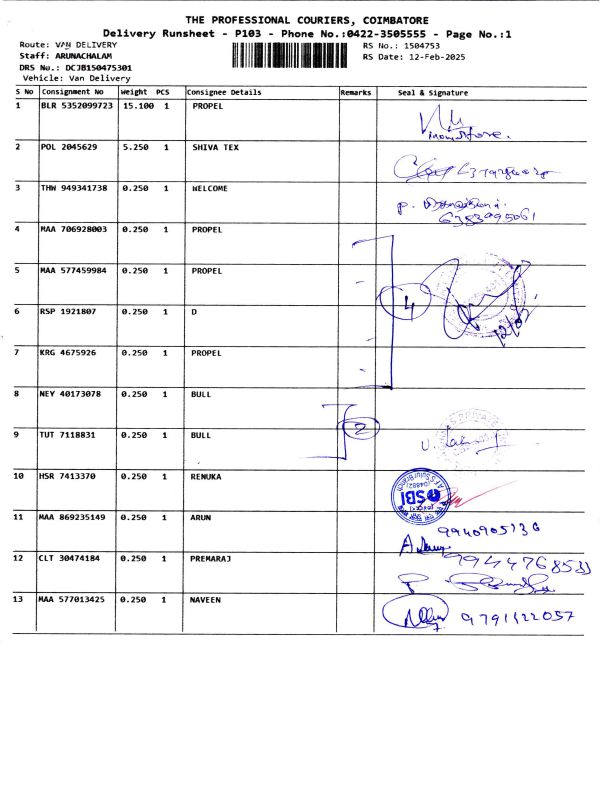 THE PROFESSIONAL COURIERS, COIMBATORE
Delivery Runsheet - P103 - Phone No.:0422-3505555 - Page No.:1
Route: VAN DELIVERY RS No.: 1504753
Staff: ARUNACHALAM RS Date: 12-Feb-2025
DRS No.: DCJB150475301
Vehicle: Van Delivery
S No Consignment No Weight PCS Consignee Details Remarks Seal & Signature
1 BLR 5352099723 15.100 1 PROPEL
2 POL 2045629 5.250 1 SHIVA TEX
3 THW 949341738 0.250 1 WELCOME
6383995061
4 MAA 706928003 0.250 1 PROPEL
5 MAA 577459984 0.250 1 PROPEL
4
6 RSP 1921807 0.250 1 D
7 KRG 4675926 0.250 1 PROPEL
8 NEY 40173078 0.250 1 BULL
2
9 TUT 7118831 0.250 1 BULL
10 HSR 7413370 0.250 1 RENUKA
SBI
11 MAA 869235149 0.250 1 ARUN
9940905736
12 CLT 30474184 0.250 1 PREMARAJ
13 MAA 577013425 0.250 1 NAVEEN
9791122057